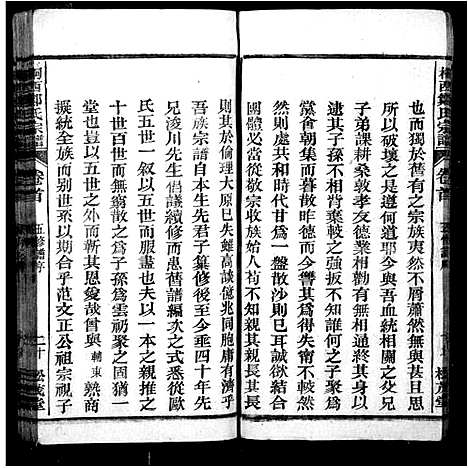 也而獨於舊有之宗族夷然不屑蕭然無與甚且思
所以破壞之是遵何道耶今與吾血統相關之父兄
子弟課耕桑敦孝友德業相勸有無相通終其身以
襄族事不相背棄較之茫然不知誰何之子聚為
黨會朝集而暮散昨德而今讐其為得失甯不較然
然則處共和時代甘為一盤散沙則已耳誠欲結合
團體必自敬宗收族始人苟不知親其親長其長
則其於倫理大原已失雖高談億兆同胞庸有濟乎
吾族宗譜自本生先君子纂修後迄今四十年先
兄淩川先生倡議續修而患舊譜編次之式悉從歐
氏五世一敘以五世而服盡也夫以一本之大遞衍
十世百世而無窮散之為子孫為雲礽聚之為廟為
堂也豈以五世之外而靳其恩敻哉曾與輔東熟商
擬統全族而別世系以期合乎范文正公祖宗視子
桐西鄭氏宗譜
卷首
五修譜序
二十
松茂堂